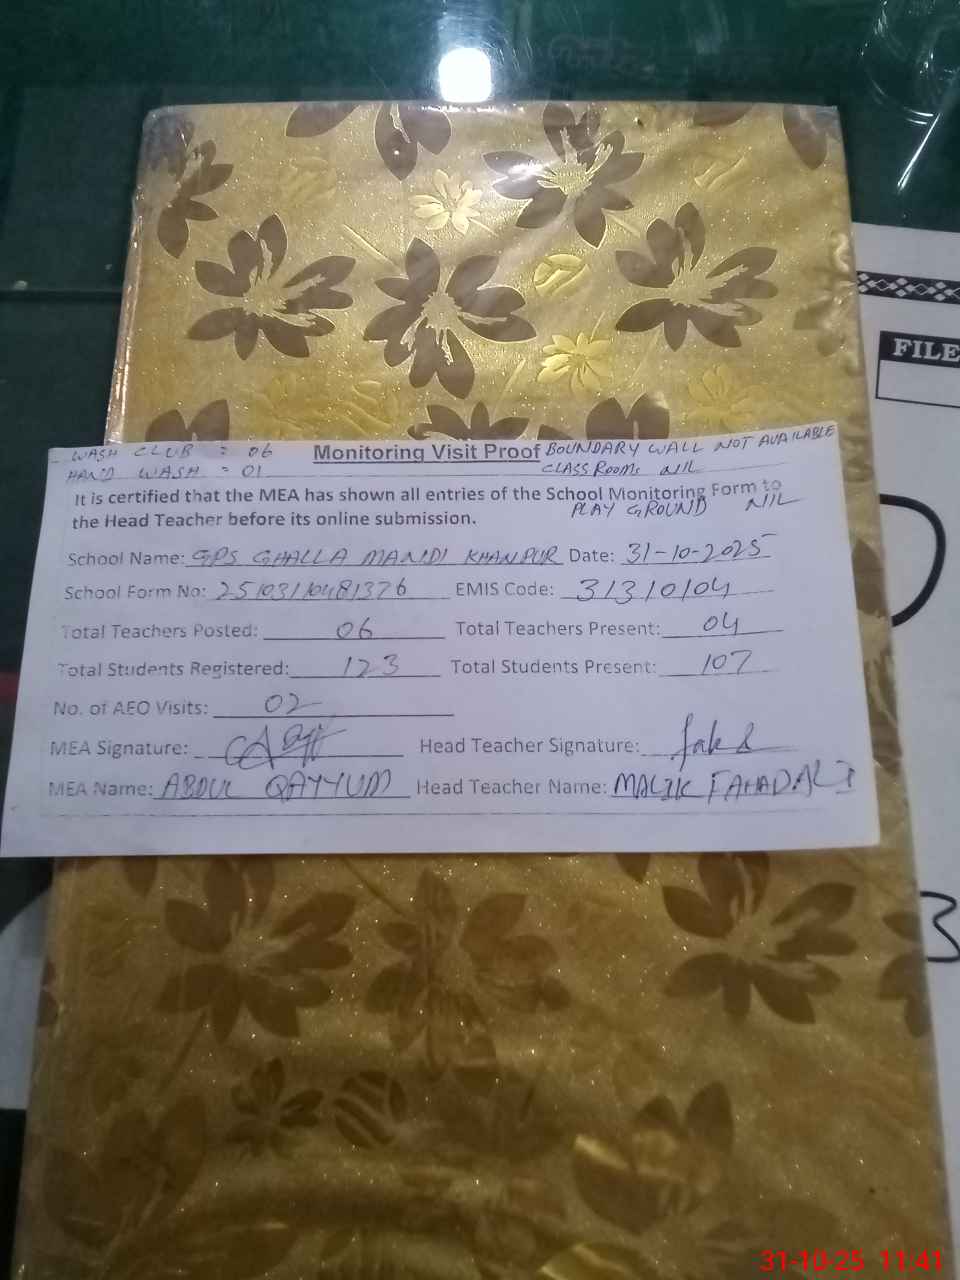 WASH CLUB : 06 Monitoring Visit Proof BOUNDARY WALL NOT AVAILABLE
HAND WASH : 01 CLASS ROOMS NIL
It is certified that the MEA has shown all entries of the School Monitoring Form to
the Head Teacher before its online submission. PLAY GROUND NIL
School Name: GPS GHALLA MANDI KHANPUR Date: 31-10-2025
School Form No: EMIS Code: 31310104
Total Teachers Posted: 06 Total Teachers Present: 04
Total Students Registered: 123 Total Students Present: 107
No. of AEO Visits: 02
MEA Signature: Head Teacher Signature:
MEA Name: ABDUL QAYYUM Head Teacher Name: MALIK FAHAD ALI
FILE
3
31-10-25 11:41